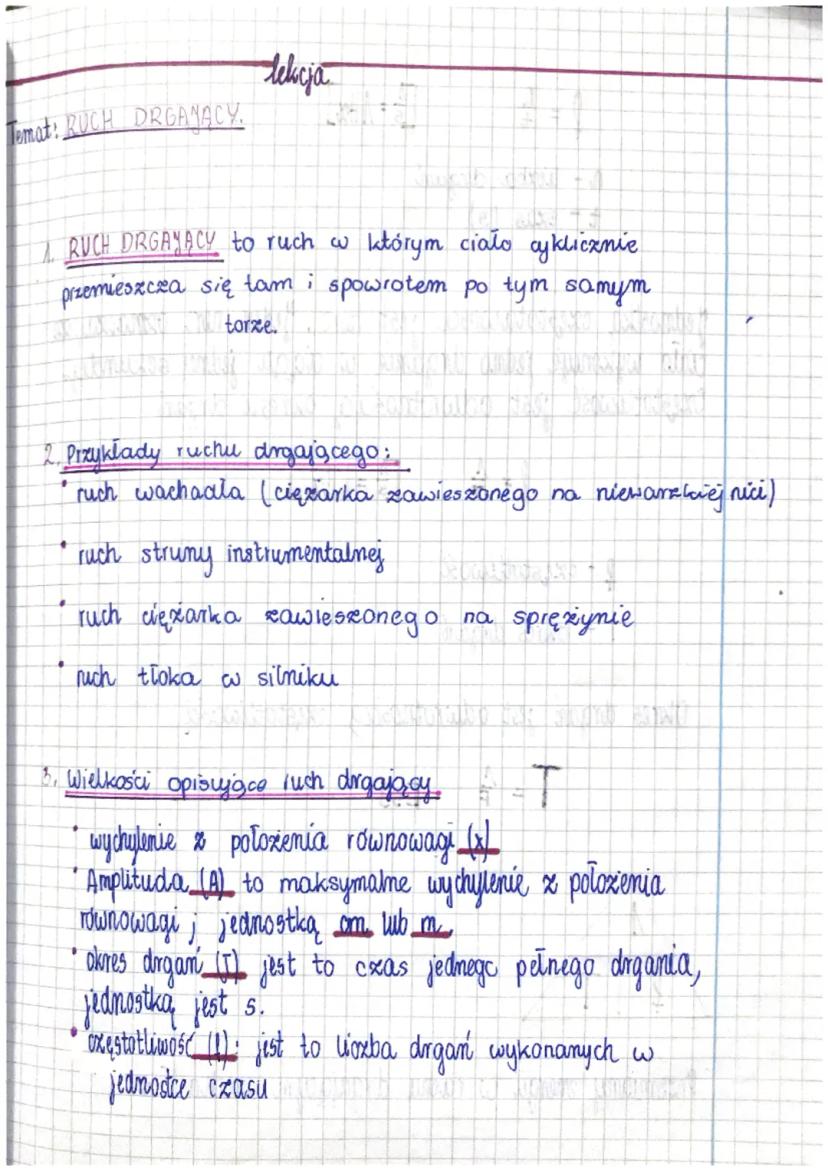 lekcja
Temat: RUCH DRGAJĄCY.
1. RUCH DRGAJĄCY to ruch w którym ciało cyklicznie
przemieszcza się tam i spowrotem po tym samym
torze.
2. Przykłady ruchu drgającego:
• ruch wachadła (ciężarka zawieszonego na nieważkiej nici)
• ruch struny instrumentalnej
• ruch ciężarka zawieszonego na sprężynie
• ruch tłoka w silniku
3. Wielkości opisujące ruch drgający
• wychylenie z położenia równowagi (x)
• Amplituda (A) to maksymalne wychylenie z położenia
równowagi; jednostką cm lub m
• okres drgań (T) jest to czas jednego pełnego drgania,
jednostką jest s.
• częstotliwość (f): jest to liczba drgań wykonanych w
jednostce czasu